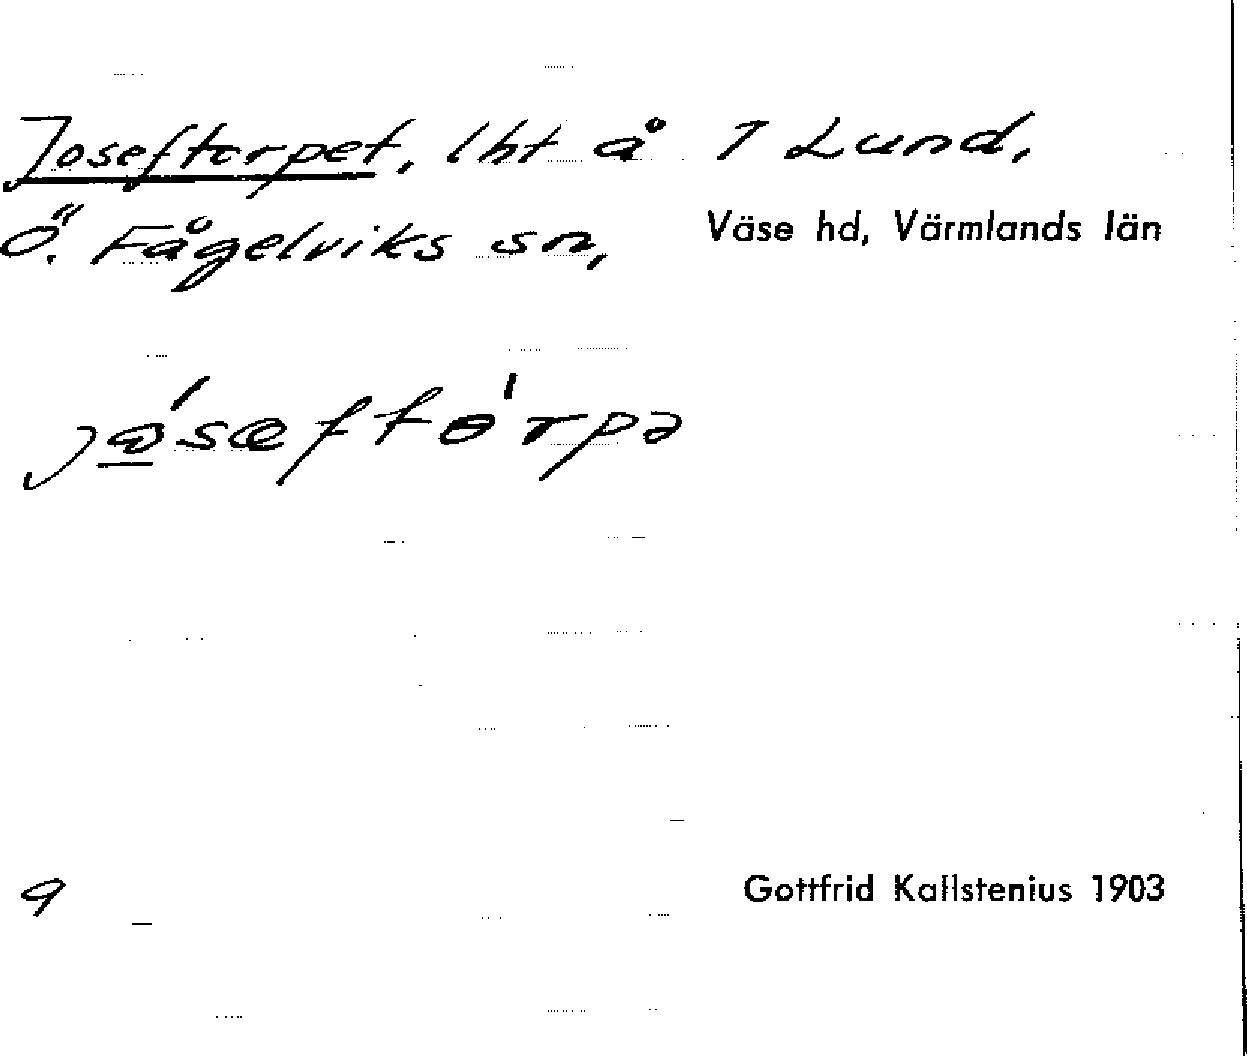 Joseftorpet, lht å 1 Lund,
Ö. Fågelviks sn, Väse hd, Värmlands län
9 Gottfrid Kallstenius 1903